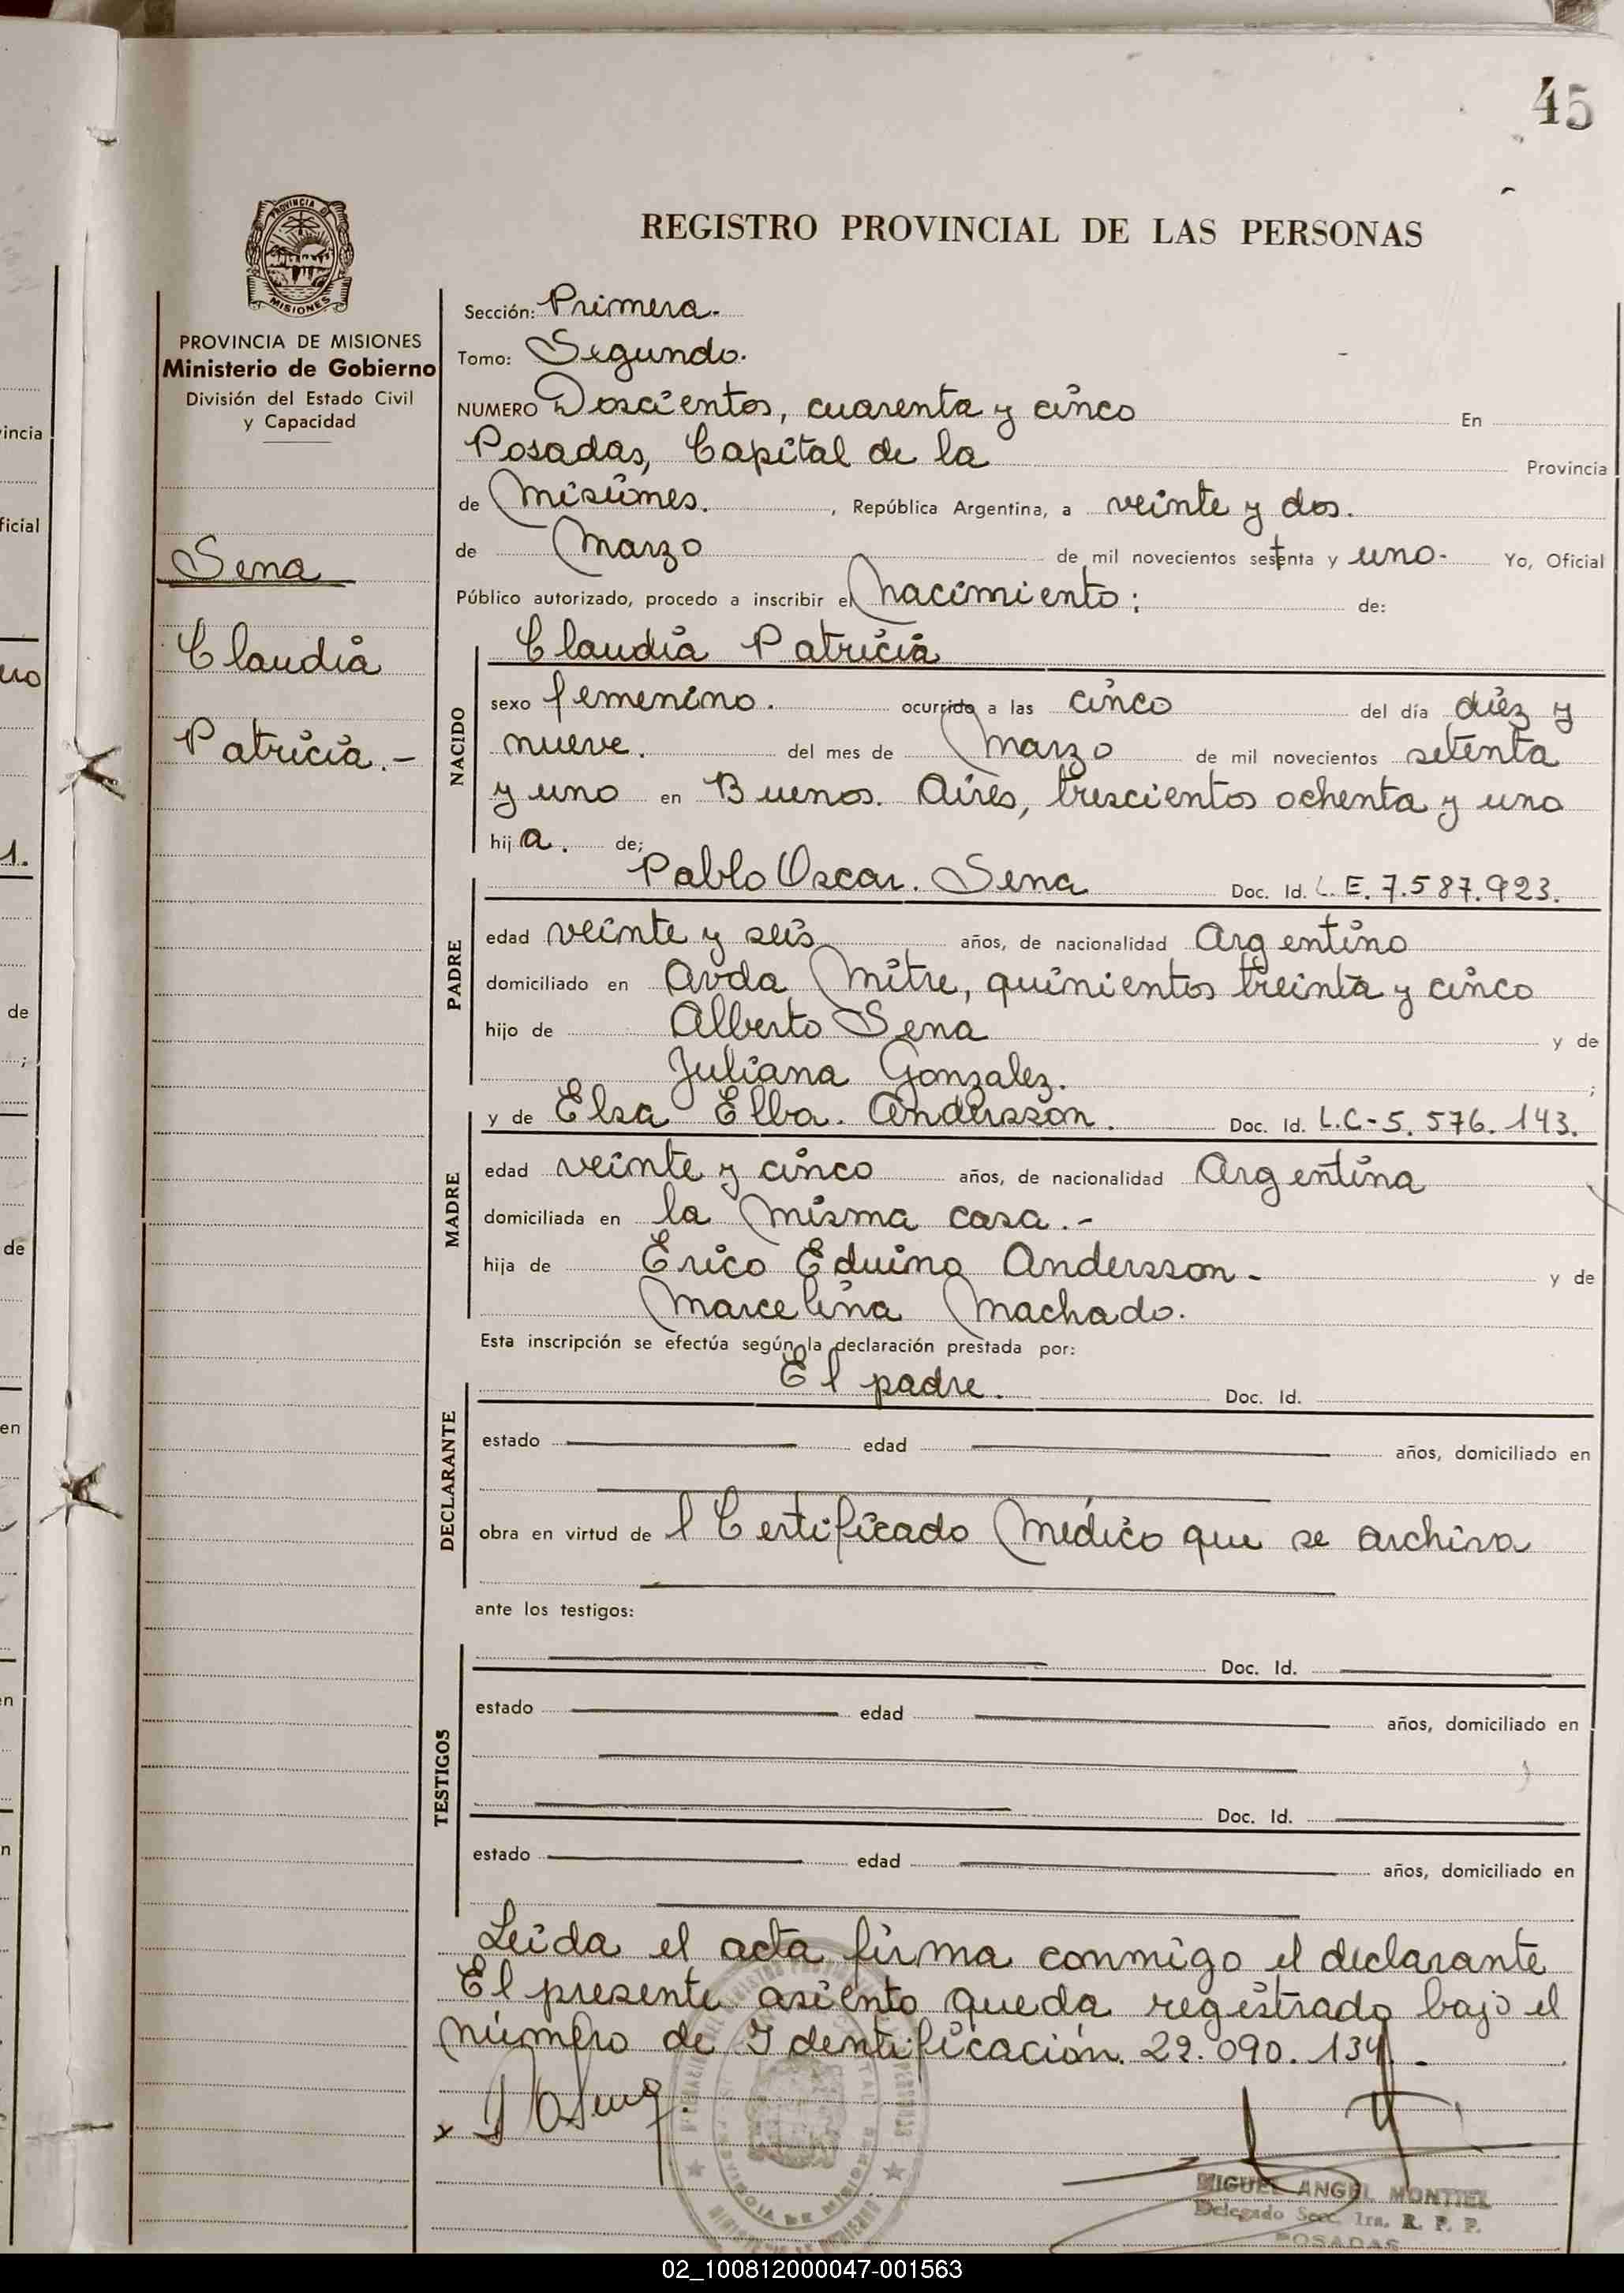 45
PROVINCIA DE
MISIONES
REGISTRO PROVINCIAL DE LAS PERSONAS
PROVINCIA DE MISIONES
Ministerio de Gobierno
División del Estado Civil
y Capacidad
Sena
Claudia
Patricia.-
Sección: Primera.-
Tomo: Segundo.
NUMERO Doscientos, cuarenta y cinco En
Posadas, Capital de la Provincia
de Misiones. , República Argentina, a veinte y dos.
de Marzo de mil novecientos setenta y uno- Yo, Oficial
Público autorizado, procedo a inscribir el nacimiento: de:
NACIDO
Claudia Patricia
sexo femenino. ocurrido a las cinco del día diéz y
nueve. del mes de Marzo de mil novecientos setenta
y uno en Buenos. Aires, trescientos ochenta y uno
hij a. de;
PADRE
Pablo Oscar. Sena Doc. Id. L.E. 7.587.923.
edad veinte y seis años, de nacionalidad Argentino
domiciliado en Avda Mitre, quinientos treinta y cinco
hijo de Alberto Sena y de
Juliana Gonzalez. ;
MADRE
y de Elsa Elba. Andersson. Doc. Id. L.C-5.576.143.
edad veinte y cinco años, de nacionalidad Argentina
domiciliada en la misma casa.-
hija de Erico Eduino Andersson- y de
Marcelina Machado.
Esta inscripción se efectúa según la declaración prestada por:
DECLARANTE
El padre. Doc. Id.
estado edad años, domiciliado en
obra en virtud de l Certificado Médico que se archiva
ante los testigos:
TESTIGOS
Doc. Id.
estado edad años, domiciliado en
Doc. Id.
estado edad años, domiciliado en
Leida el acta firma conmigo el declarante
El presente asiento queda registrado bajo el
número de Identificación. 22.090.134.-
x
MIGUEL ANGEL MONTIEL
Delegado Secc. 1ra. R. P. P.
POSADAS
02_100812000047-001563